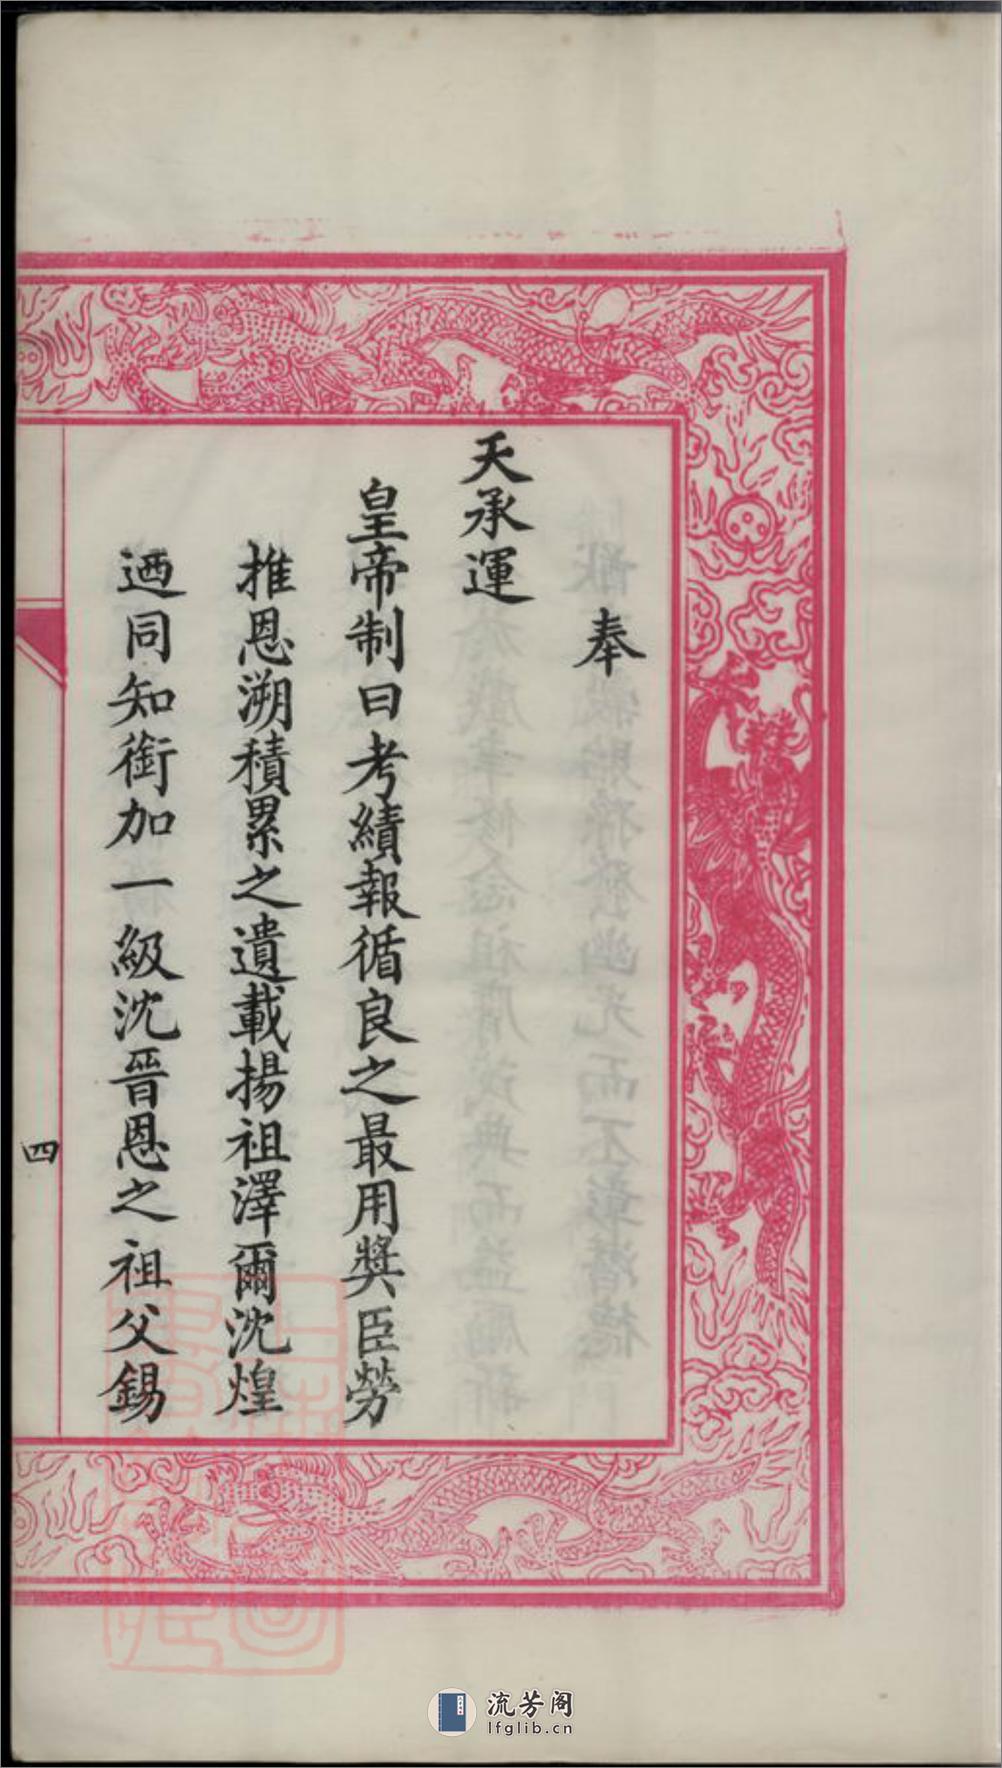 奉
天承運
皇帝制曰考績報循良之最用獎臣勞
推恩溯積累之遺載揚祖澤爾沈煌
迺同知銜加一級沈晉恩之祖父錫
四
流芳阁
lfglib.cn